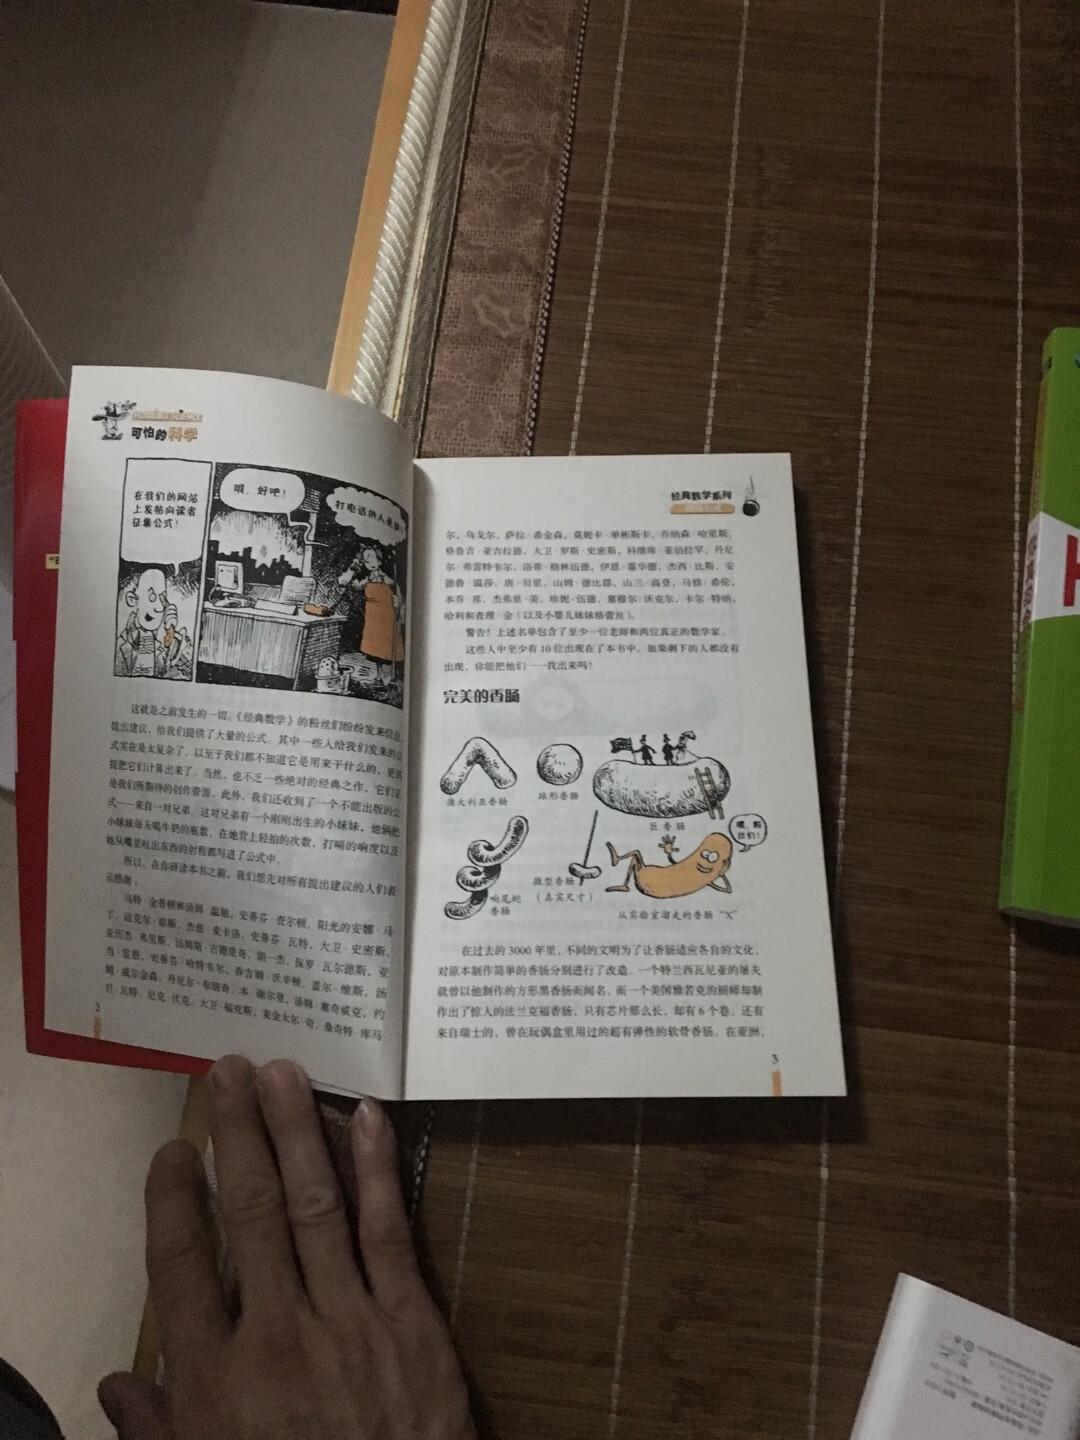 可怕的科学
在我们的网站
上发帖向读者
征集公式！
哦，好吧！
打电话的人是
这就是之前发生的一切。《经典数学》的粉丝们纷纷发来信息，
提出建议，给我们提供了大量的公式。其中一些人给我们发来的公
式实在是太复杂了，以至于我们都不知道它是用来干什么的，更
提把它们计算出来了。当然，也不乏一些绝对的经典之作，它们正
是我们所期待的创作资源。此外，我们还收到了一个不能出版的公
式——来自一对兄弟。这对兄弟有一个刚刚出生的小妹妹，他俩把
小妹妹每天喝牛奶的瓶数、在她背上轻拍的次数、打嗝的响度以及
她从嘴里吐出东西的射程都写进了公式中。
所以，在你研读本书之前，我们想先对所有提出建议的人们表
示感谢：
马特·金普顿和汤姆·温驰，史蒂芬·查尔顿，阳光的安娜·马
丁，迈克尔·琼斯，杰兹·麦卡洛，史蒂芬·瓦特，大卫·史密斯，
亚历杰·弗里斯，汤姆斯·古德里奇，凯一杰，保罗·瓦尔德斯，亚
当·雷恩，史蒂芬·哈特韦尔，乔吉姆·沃辛顿，盖尔·维斯，汤
姆·威尔金森，丹尼尔·布朗奇，本·谢尔曼，汤姆·塞奇威克，约
旦·瓦特，尼克·伏克，大卫·福克斯，麦金太尔·奇，桑奇特·库马
2
经典数学系列
尔，乌戈尔，萨拉·希金森，莫妮卡·单彬斯卡，乔纳森·哈里斯，
格鲁吉·亚吉拉德，大卫·罗斯·史密斯，科维库·亚伯拉罕，丹尼
尔·弗雷特韦尔，洛蒂·格林伍德，伊恩·霍华德，杰西·比斯，安
德鲁·温莎，唐·贝里，山姆·德比郡，山兰·高登，马修·希伦，
本乔·那，杰弗里·美，珍妮·伍德，塞穆尔·沃克尔，卡尔·特纳，
哈利和查理·金（以及小婴儿妹妹格蕾丝）。
警告！上述名单包含了至少一位老师和两位真正的数学家。
这些人中至少有10位出现在了本书中。如果剩下的人都没有
出现，你能把他们一一找出来吗？
完美的香肠
澳大利亚香肠
球形香肠
巨香肠
响尾蛇
香肠
微型香肠
（真实尺寸）
嘿，伙
计们！
从实验室溜走的香肠“X”
在过去的3000年里，不同的文明为了让香肠适应各自的文化，
对原本制作简单的香肠分别进行了改造。一个特兰西瓦尼亚的屠夫
就曾以他制作的方形黑香肠而闻名，而一个美国雅若克的厨师却制
作出了惊人的法兰克福香肠，只有芯片那么长，却有6个卷。还有
来自瑞士的，曾在玩偶盒里用过的超有弹性的软骨香肠。在亚洲，
3
H